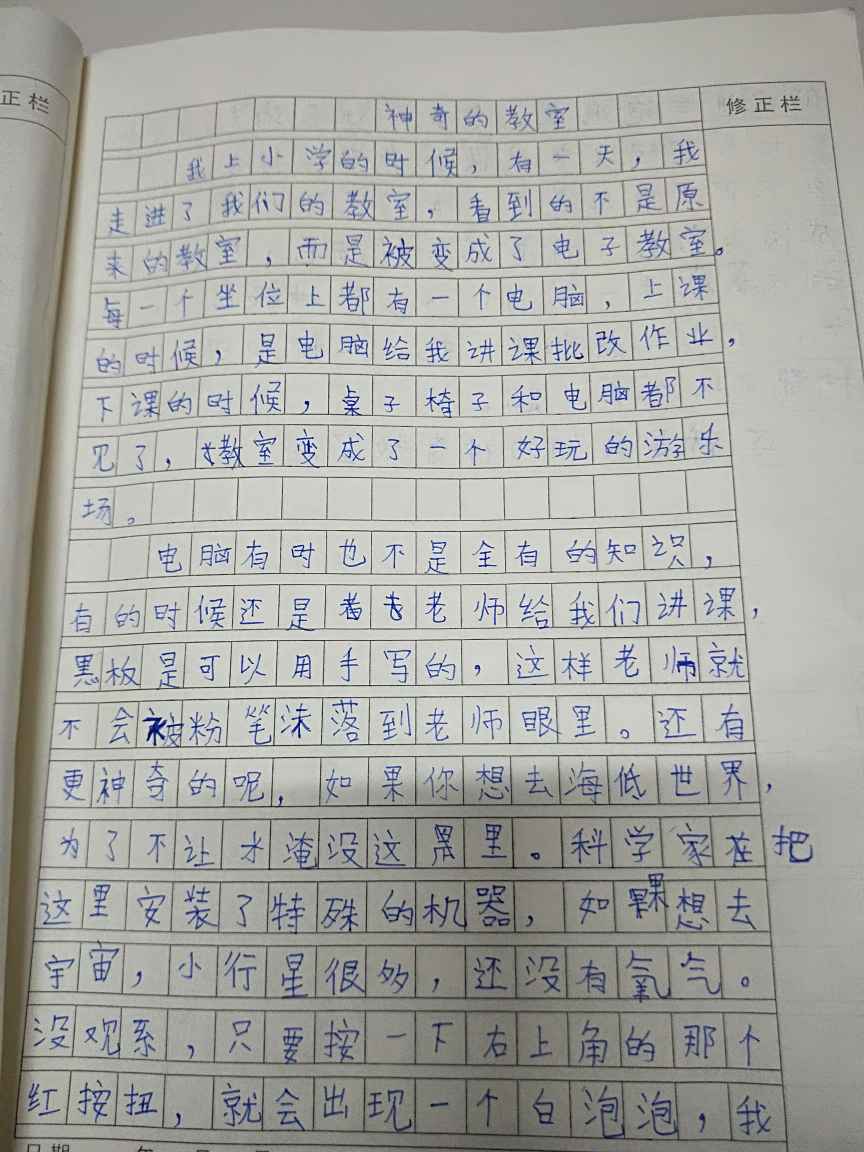 正栏
修正栏
神奇的教室
我上小学的时候，有一天，我
走进了我们的教室，看到的不是原
来的教室，而是被变成了电子教室。
每一个坐位上都有一个电脑，上课
的时候，是电脑给我讲课批改作业，
下课的时候，桌子椅子和电脑都不
见了，教室变成了一个好玩的游乐
场。
电脑有时也不是全有的知识，
有的时候还是老师给我们讲课，
黑板是可以用手写的，这样老师就
不会被粉笔沫落到老师眼里。还有
更神奇的呢，如果你想去海低世界，
为了不让水淹没这里。科学家在把
这里安装了特殊的机器，如果想去
宇宙，小行星很多，还没有氧气。
没观系，只要按一下右上角的那个
红按扭，就会出现一个白泡泡，我